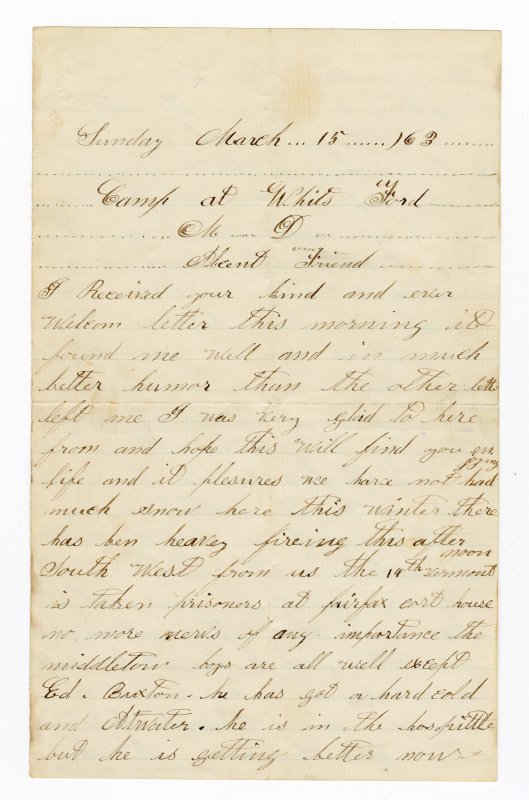 Sunday March ... 15 ...... /63 ........
Camp at Whits Ford
M D
Absent Friend
I Received your kind and ever
Welcom letter this morning it
found me well and in much
better humor than the other
left me I was very glad to here
from and hope this will find you enjoying
life and it plesures we have not had
much snow here this winter there
has ben heavey fireing this after noon
South West from us the 14th Vermont
is taken prisoners at fairfax cort house
no more news of any importance the
middletown boys are all well except
Ed. Buxton. he has got a hard cold
and Atwater. he is in the hospittle
but he is getting better now